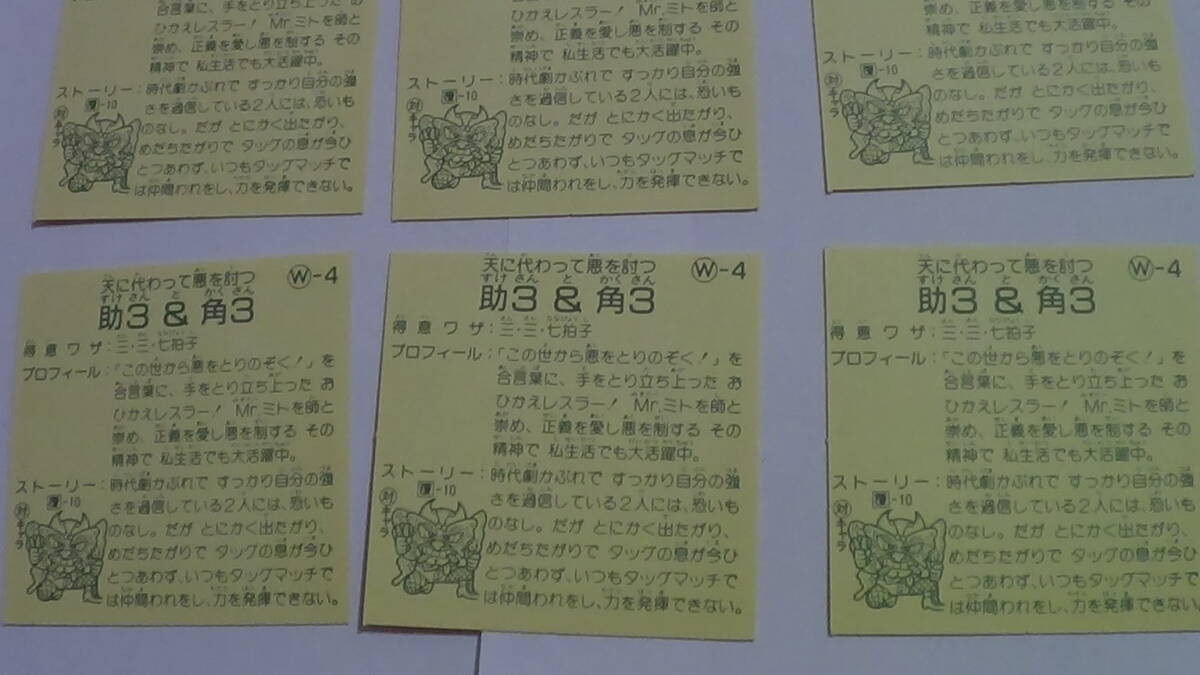 合言葉に、手をとり立ち上った お
ひかえレスラー! Mr.ミトを師と
崇め、正義を愛し悪を制する その
精神で 私生活でも大活躍中。
ストーリー:時代劇かぶれで すっかり自分の強
さを過信している2人には、恐いも
のなし。だが とにかく出たがり、
めだちたがりで タッグの息が今ひ
とつあわず、いつもタッグマッチで
は仲間われをし、力を発揮できない。
対キャラ
覆-10
ひかえレスラー! Mr.ミトを師と
崇め、正義を愛し悪を制する その
精神で 私生活でも大活躍中。
ストーリー:時代劇かぶれで すっかり自分の強
さを過信している2人には、恐いも
のなし。だが とにかく出たがり、
めだちたがりで タッグの息が今ひ
とつあわず、いつもタッグマッチで
は仲間われをし、力を発揮できない。
対キャラ
覆-10
崇め、正義を愛し悪を制する その
精神で 私生活でも大活躍中。
ストーリー:時代劇かぶれで すっかり自分の強
さを過信している2人には、恐いも
のなし。だが とにかく出たがり、
めだちたがりで タッグの息が今ひ
とつあわず、いつもタッグマッチで
は仲間われをし、力を発揮できない。
対キャラ
覆-10
天に代わって悪を討つ
W-4
助3 & 角3
すけさん と かくさん
得意ワザ:三・三・七拍子
プロフィール:「この世から悪をとりのぞく!」を
合言葉に、手をとり立ち上った お
ひかえレスラー! Mr.ミトを師と
崇め、正義を愛し悪を制する その
精神で 私生活でも大活躍中。
ストーリー:時代劇かぶれで すっかり自分の強
さを過信している2人には、恐いも
のなし。だが とにかく出たがり、
めだちたがりで タッグの息が今ひ
とつあわず、いつもタッグマッチで
は仲間われをし、力を発揮できない。
対キャラ
覆-10
天に代わって悪を討つ
W-4
助3 & 角3
すけさん と かくさん
得意ワザ:三・三・七拍子
プロフィール:「この世から悪をとりのぞく!」を
合言葉に、手をとり立ち上った お
ひかえレスラー! Mr.ミトを師と
崇め、正義を愛し悪を制する その
精神で 私生活でも大活躍中。
ストーリー:時代劇かぶれで すっかり自分の強
さを過信している2人には、恐いも
のなし。だが とにかく出たがり、
めだちたがりで タッグの息が今ひ
とつあわず、いつもタッグマッチで
は仲間われをし、力を発揮できない。
対キャラ
覆-10
天に代わって悪を討つ
W-4
助3 & 角3
すけさん と かくさん
得意ワザ:三・三・七拍子
プロフィール:「この世から悪をとりのぞく!」を
合言葉に、手をとり立ち上った お
ひかえレスラー! Mr.ミトを師と
崇め、正義を愛し悪を制する その
精神で 私生活でも大活躍中。
ストーリー:時代劇かぶれで すっかり自分の強
さを過信している2人には、恐いも
のなし。だが とにかく出たがり、
めだちたがりで タッグの息が今ひ
とつあわず、いつもタッグマッチで
は仲間われをし、力を発揮できない。
対キャラ
覆-10